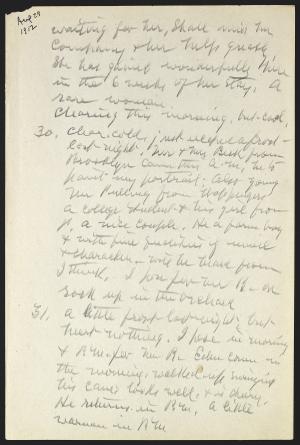 Aug 29
1912
waiting for her, shall miss her
company & her help greatly
She has gained wonderfully here
in the 6 weeks of her stay. A
rare woman.
Clearing this morning, but cool.
30, Clear, cold, just escaped a frost
last night. Mr & Mrs from
Brooklyn came this A.m., he to
paint my portrait. Also young
from
a college student & his girl from
N, a nice couple. He a farm boy
& with fine qualities of mind
& character — will be heard from
I think. I pose for Mr B— on
rock up in the orchard
31, a little frost last night but
hurt nothing. I pose in morning
& P.m. for Mr B. Eden came in
the morning, walked up swinging
his cane; looks well, & is doing.
He returns in P.m. A little
warmer in P.m